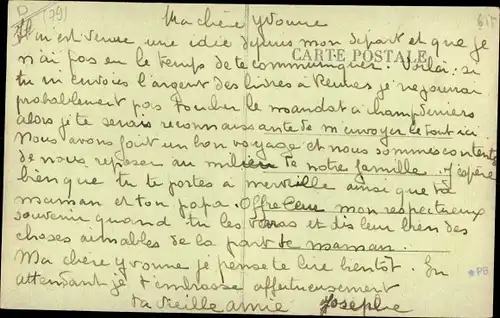 D (79)
Ma chère Yvonne
Il m'est venue une idée depuis mon départ et que je
CARTE POSTALE
n'ai pas eu le temps de te communiquer. Voilà : si
tu m'envoies l'argent des livres à Rennes je ne pourrai
probablement pas toucher le mandat à Champdeniers
alors je te serais reconnaissante de m'envoyer le tout ici
Nous avons fait un bon voyage et nous sommes contents
de nous reposer au milieu de notre famille. J'espère
bien que tu te portes à merveille ainsi que ta
maman et ton papa. Offre leur mon respectueux
souvenir quand tu les verras et dis leur bien des
choses aimables de la part de maman.
Ma chère Yvonne je pense te lire bientôt. En
attendant je t'embrasse affectueusement
ta vieille amie Josèphe
*PB